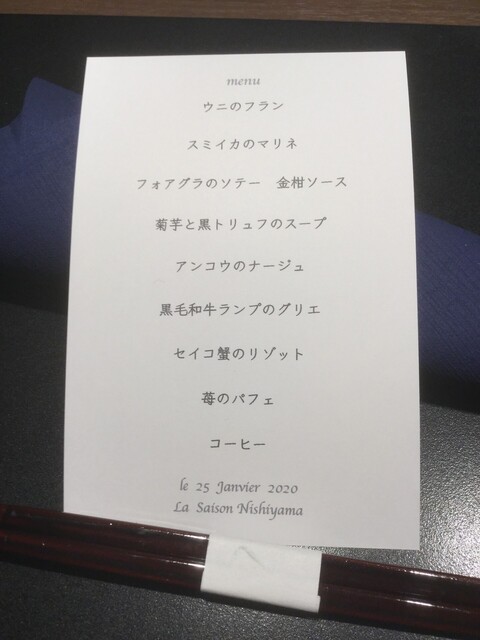 menu
ウニのフラン
スミイカのマリネ
フォアグラのソテー　金柑ソース
菊芋と黒トリュフのスープ
アンコウのナージュ
黒毛和牛ランプのグリエ
セイコ蟹のリゾット
苺のパフェ
コーヒー
le 25 Janvier 2020
La Saison Nishiyama